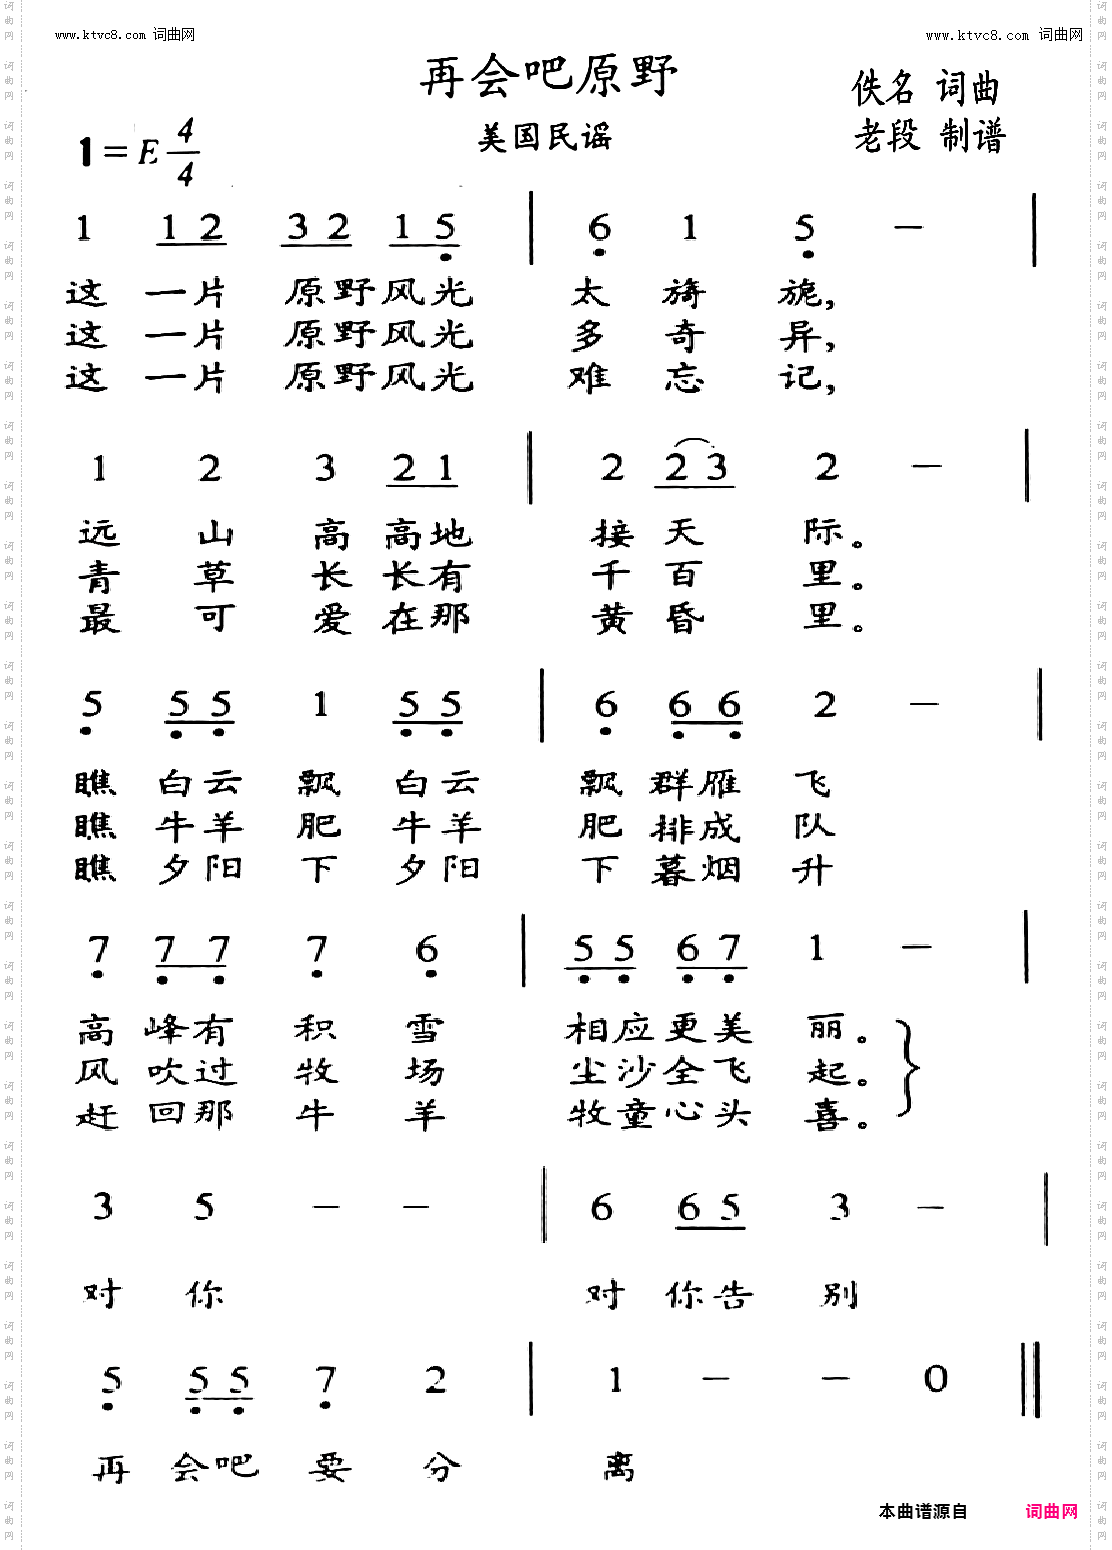 www.ktvc8.com 词曲网 www.ktvc8.com 词曲网
再会吧原野
佚名 词曲
美国民谣
老段 制谱
1=E 4/4
1 1 2 3 2 1 5 | 6 1 5 — |
这 一片 原野风光 太 旖 旎,
这 一片 原野风光 多 奇 异,
这 一片 原野风光 难 忘 记,
1 2 3 2 1 | 2 2 3 2 — |
远 山 高 高地 接 天 际。
青 草 长 长有 千 百 里。
最 可 爱 在那 黄 昏 里。
5 5 5 1 5 5 | 6 6 6 2 — |
瞧 白云 飘 白云 飘 群雁 飞
瞧 牛羊 肥 牛羊 肥 排成 队
瞧 夕阳 下 夕阳 下 暮烟 升
7 7 7 7 6 | 5 5 6 7 1 — |
高 峰有 积 雪 相应更美 丽。
风 吹过 牧 场 尘沙全飞 起。
赶 回那 牛 羊 牧童心头 喜。
3 5 — — | 6 6 5 3 — |
对 你 对 你告 别
5 5 5 7 2 | 1 — — 0 ‖
再 会吧 要 分 离
本曲谱源自 词曲网